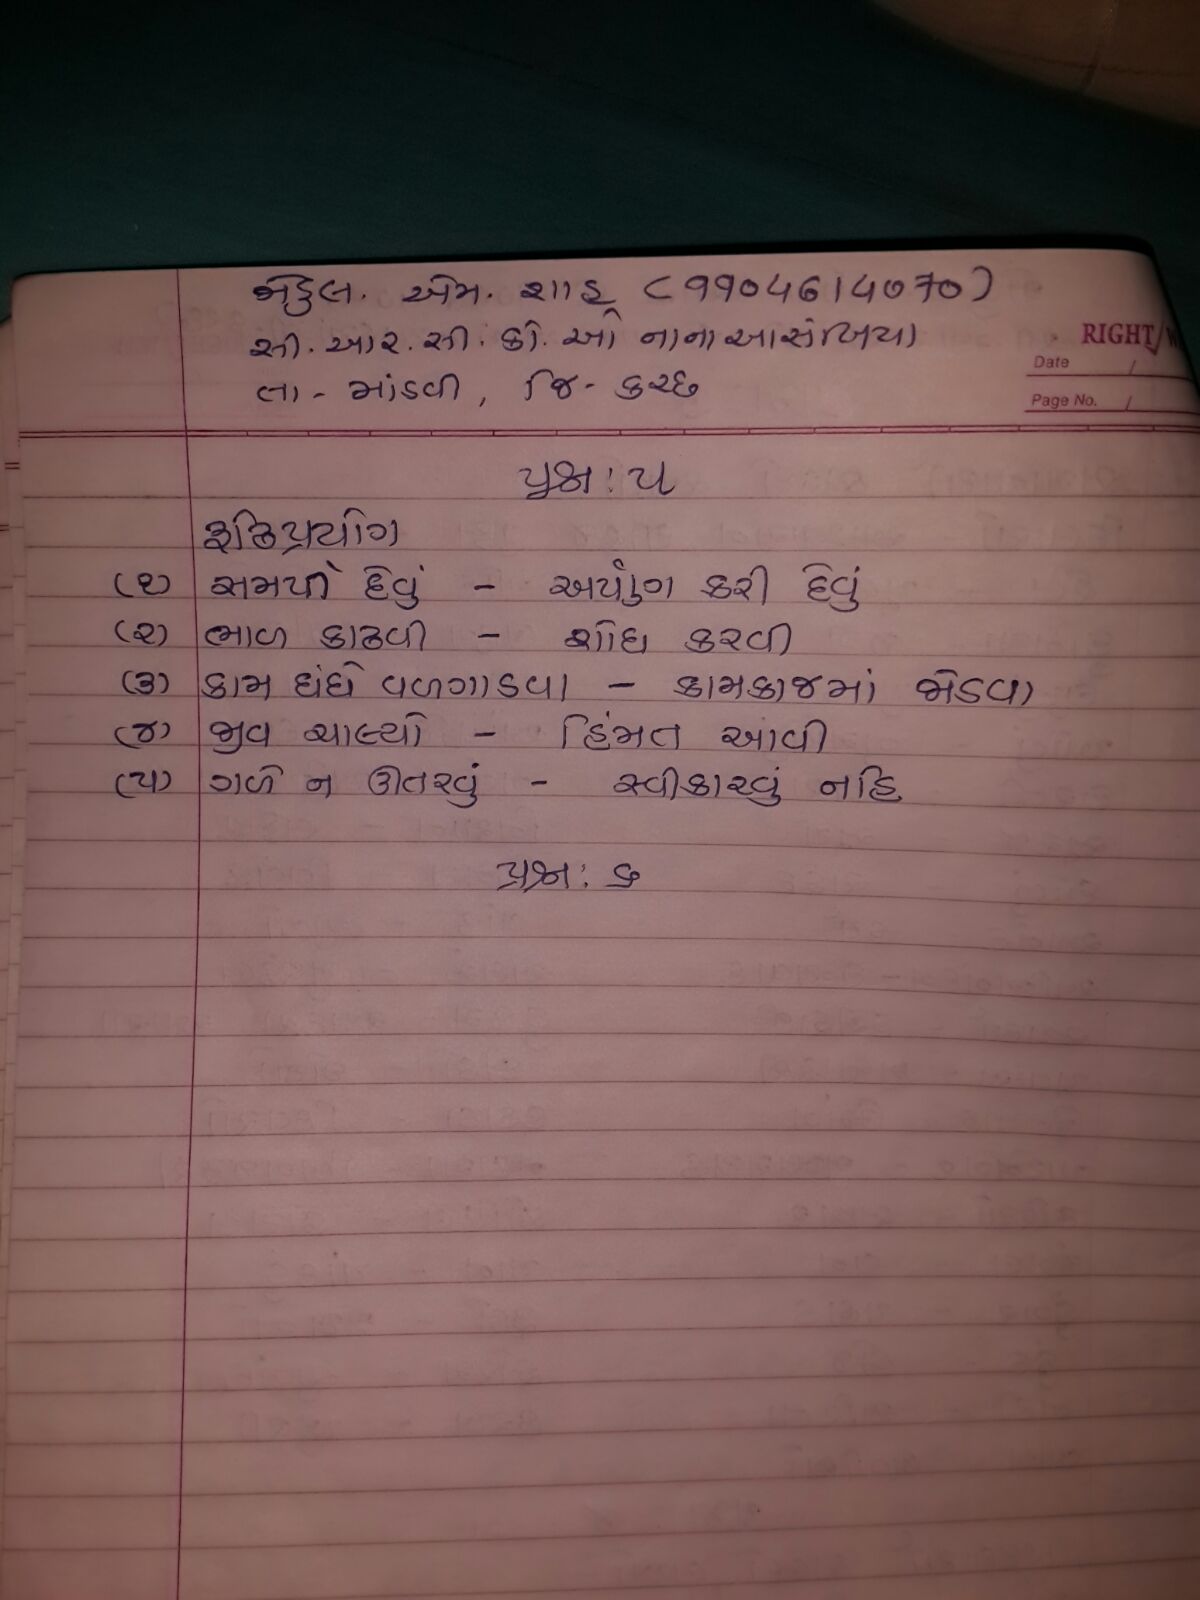 મેહુલ. એમ. શાહ (9904614070)
સી.આર.સી. કો. ઓ નાના આસંબિયા
RIGHT/W
Date /
તા - માંડવી, જિ - કચ્છ
Page No. /
પ્રશ્ન: ૫
રૂઢિપ્રયોગ
(૧) સમર્પી દેવું - અર્પણ કરી દેવું
(૨) ભાળ કાઢવી - શોધ કરવી
(૩) કામ ધંધે વળગાડવા - કામકાજમાં જોડવા
(૪) જીવ ચાલ્યો - હિંમત આવી
(૫) ગળે ન ઊતરવું - સ્વીકારવું નહિ
પ્રશ્ન: ૬